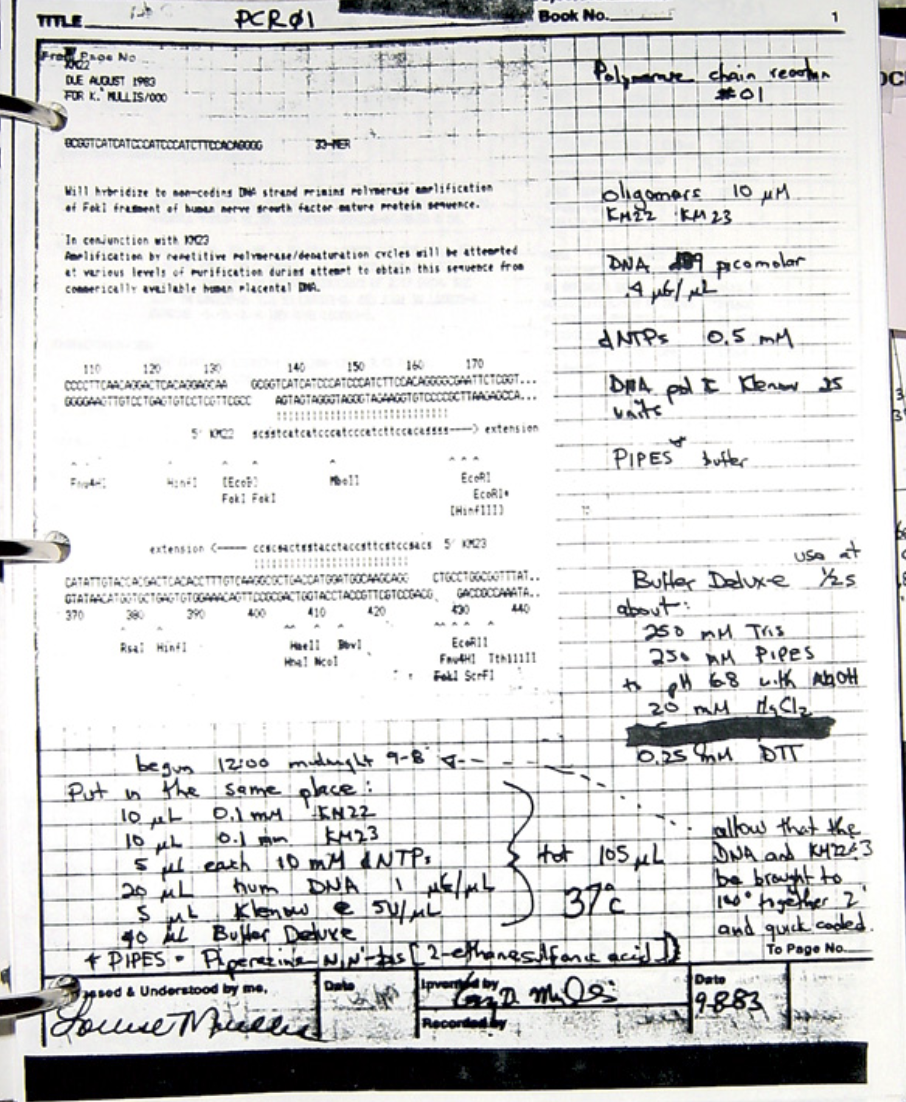 TITLE PCRØ1 Book No. 1
From Page No
KM22
DUE AUGUST 1983
FOR K. MULLIS/000
GCGGTCATCATCCCATCCCATCTTCCACAGGGG 33-MER
Will hybridize to non-coding DNA strand priming polymerase amplification
of FokI fragment of human nerve growth factor mature protein sequence.
In conjunction with KM23
Amplification by repetitive polymerase/denaturation cycles will be attempted
at various levels of purification during attempt to obtain this sequence from
commerically available human placental DNA.
110 120 130 140 150 160 170
CCCCTTCAACAGGACTCACAGGAGCAA GCGGTCATCATCCCATCCCATCTTCCACAGGGGCGAATTCTCGGT...
GGGGAAGTTGTCCTGAGTGTCCTCGTTCGCC AGTAGTAGGGTAGGGTAGAAGGTGTCCCCGCTTAAGAGCCA...
5' KM22 gcggtcatcatcccatcccatcttccacagggg----> extension
Fnu4HI HinfI [EcoP] MboII EcoRI
FokI FokI EcoRI*
[HinfIII]
extension <----- ccgcgactggtacctaccgttcgtccgacg 5' KM23
CATATTGTACCACGACTCACACCTTTGTCAAGGCGCTGACCATGGATGGCAAGCAGG CTGCCTGGCGGTTTAT..
GTATAACATGGTGCTGAGTGTGGAAACAGTTCCGCGACTGGTACCTACCGTTCGTCCGACG GACCGCCAAATA..
370 380 390 400 410 420 430 440
RsaI HinfI HaeII BbvI EcoRII
HhaI NcoI Fnu4HI Tth111II
FokI ScrFI
Polymerase chain reaction
#01
oligomers 10 µM
KM22 KM23
DNA picomolar
.4 µG/µL
dNTPs 0.5 mM
DNA pol I Klenow 25
units
PIPES buffer
use at
Buffer Deluxe 1/2.5
about:
250 mM Tris
250 mM PIPES
to pH 6.8 with NaOH
20 mM MgCl2
0.25 mM DTT
begun 12:00 midnight 9-8
Put in the same place:
10 µL 0.1 mM KM22
10 µL 0.1 mM KM23
5 µL each 10 mM dNTPs
20 µL hum DNA 1 µG/µL
5 µL Klenow @ 5U/µL
40 µL Buffer Deluxe
tot 105 µL
37°C
allow that the
DNA and KM22&3
be brought to
100° together 2'
and quick cooled.
* PIPES = Piperazine-N,N'-bis[2-ethanesulfonic acid]
To Page No.
& Understood by me,
Date
Invented by
Date
9-8-83
Recorded by